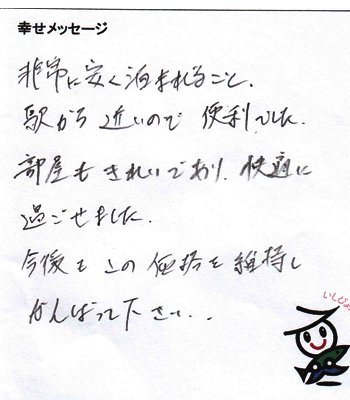 幸せメッセージ
非常に安く泊まれること、
駅から近いので便利でした。
部屋もきれいであり、快適に
過ごせました。
今後もこの価格を維持し
がんばって下さい..